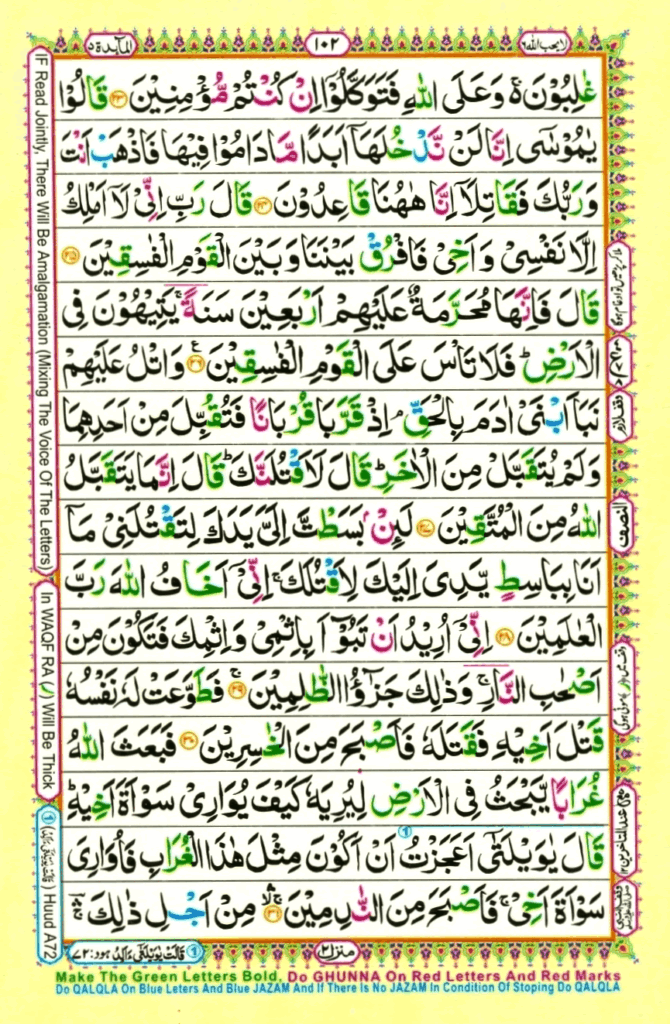 المآئدة ٥
١٠٢
لا يحب الله ٦
غٰلِبُوْنَ ۚ۬ وَعَلَى اللّٰهِ فَتَوَكَّلُوْۤا اِنْ كُنْتُمْ مُّؤْمِنِيْنَ ﴿۲۳﴾ قَالُوْا
يٰمُوْسٰۤى اِنَّا لَنْ نَّدْخُلَهَاۤ اَبَدًا مَّا دَامُوْا فِيْهَا فَاذْهَبْ اَنْتَ
وَرَبُّكَ فَقَاتِلَاۤ اِنَّا هٰهُنَا قَاعِدُوْنَ ﴿۲۴﴾ قَالَ رَبِّ اِنِّيْ لَاۤ اَمْلِكُ
اِلَّا نَفْسِيْ وَاَخِيْ فَافْرُقْ بَيْنَنَا وَبَيْنَ الْقَوْمِ الْفٰسِقِيْنَ ﴿۲۵﴾
قَالَ فَاِنَّهَا مُحَرَّمَةٌ عَلَيْهِمْ اَرْبَعِيْنَ سَنَةً ۚ يَتِيْهُوْنَ فِي
الْاَرْضِ ؕ فَلَا تَاْسَ عَلَى الْقَوْمِ الْفٰسِقِيْنَ ﴿۲۶﴾ وَاتْلُ عَلَيْهِمْ
نَبَاَ ابْنَيْ اٰدَمَ بِالْحَقِّ ۘ اِذْ قَرَّبَا قُرْبَانًا فَتُقُبِّلَ مِنْ اَحَدِهِمَا
وَلَمْ يُتَقَبَّلْ مِنَ الْاٰخَرِ ؕ قَالَ لَاَقْتُلَنَّكَ ؕ قَالَ اِنَّمَا يَتَقَبَّلُ
اللّٰهُ مِنَ الْمُتَّقِيْنَ ﴿۲۷﴾ لَئِنْۢ بَسَطْتَّ اِلَيَّ يَدَكَ لِتَقْتُلَنِيْ مَاۤ
اَنَا بِبَاسِطٍ يَّدِيَ اِلَيْكَ لِاَقْتُلَكَ ۚ اِنِّيْۤ اَخَافُ اللّٰهَ رَبَّ
الْعٰلَمِيْنَ ﴿۲۸﴾ اِنِّيْۤ اُرِيْدُ اَنْ تَبُوْٓاَ بِاِثْمِيْ وَاِثْمِكَ فَتَكُوْنَ مِنْ
اَصْحٰبِ النَّارِ ۚ وَذٰلِكَ جَزٰٓؤُا الظّٰلِمِيْنَ ﴿۲۹﴾ فَطَوَّعَتْ لَهٗ نَفْسُهٗ
قَتْلَ اَخِيْهِ فَقَتَلَهٗ فَاَصْبَحَ مِنَ الْخٰسِرِيْنَ ﴿۳۰﴾ فَبَعَثَ اللّٰهُ
غُرَابًا يَّبْحَثُ فِي الْاَرْضِ لِيُرِيَهٗ كَيْفَ يُوَارِيْ سَوْاَةَ اَخِيْهِ ؕ
قَالَ يٰوَيْلَتٰۤى اَعَجَزْتُ اَنْ اَكُوْنَ مِثْلَ هٰذَا الْغُرَابِ فَاُوَارِيَ
سَوْاَةَ اَخِيْ ۚ فَاَصْبَحَ مِنَ النّٰدِمِيْنَ ﴿۳۱﴾ مِنْ اَجْلِ ذٰلِكَ
IF Read Jointly, There Will Be Amalgamation (Mixing The Voice Of The Letters)
In WAQF RA (ر) Will Be Thick
(قَالَتْ يٰوَيْلَتٰى ءَاَلِدُ) Huud A72
وقف لازم
النصف
منزل ٢
قَالَتْ يٰوَيْلَتٰى ءَاَلِدُ هود: ٧٢
Make The Green Letters Bold, Do GHUNNA On Red Letters And Red Marks
Do QALQLA On Blue Leters And Blue JAZAM And If There Is No JAZAM In Condition Of Stoping Do QALQLA